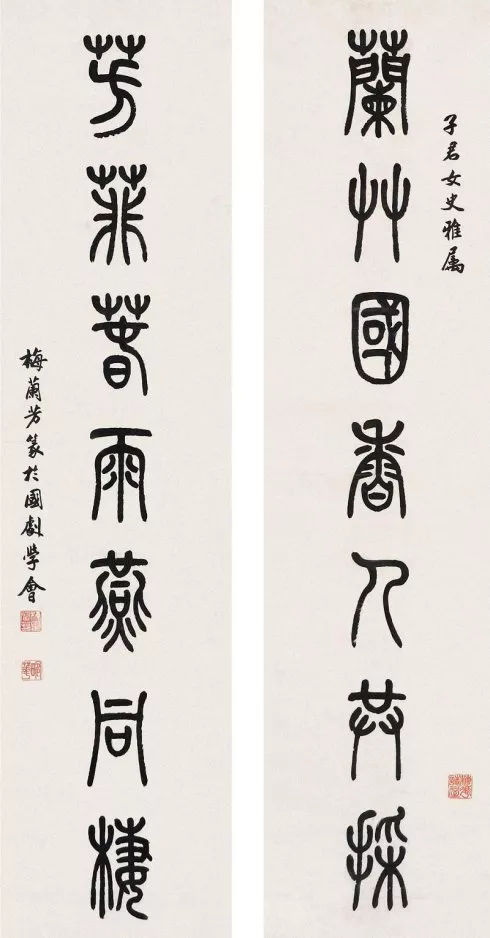 子君女史雅属
蘭艸國香人共採
芳菲萅雨燕同棲
梅蘭芳篆於國劇學會